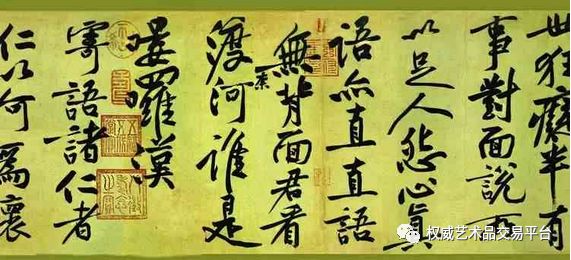 世狂癡半有
事對面說所
以足人怨心真
語亦直直語
無背面君看
渡奈河誰是
嘍囉漢
寄語諸仁者
仁以何爲懷
权威艺术品交易平台